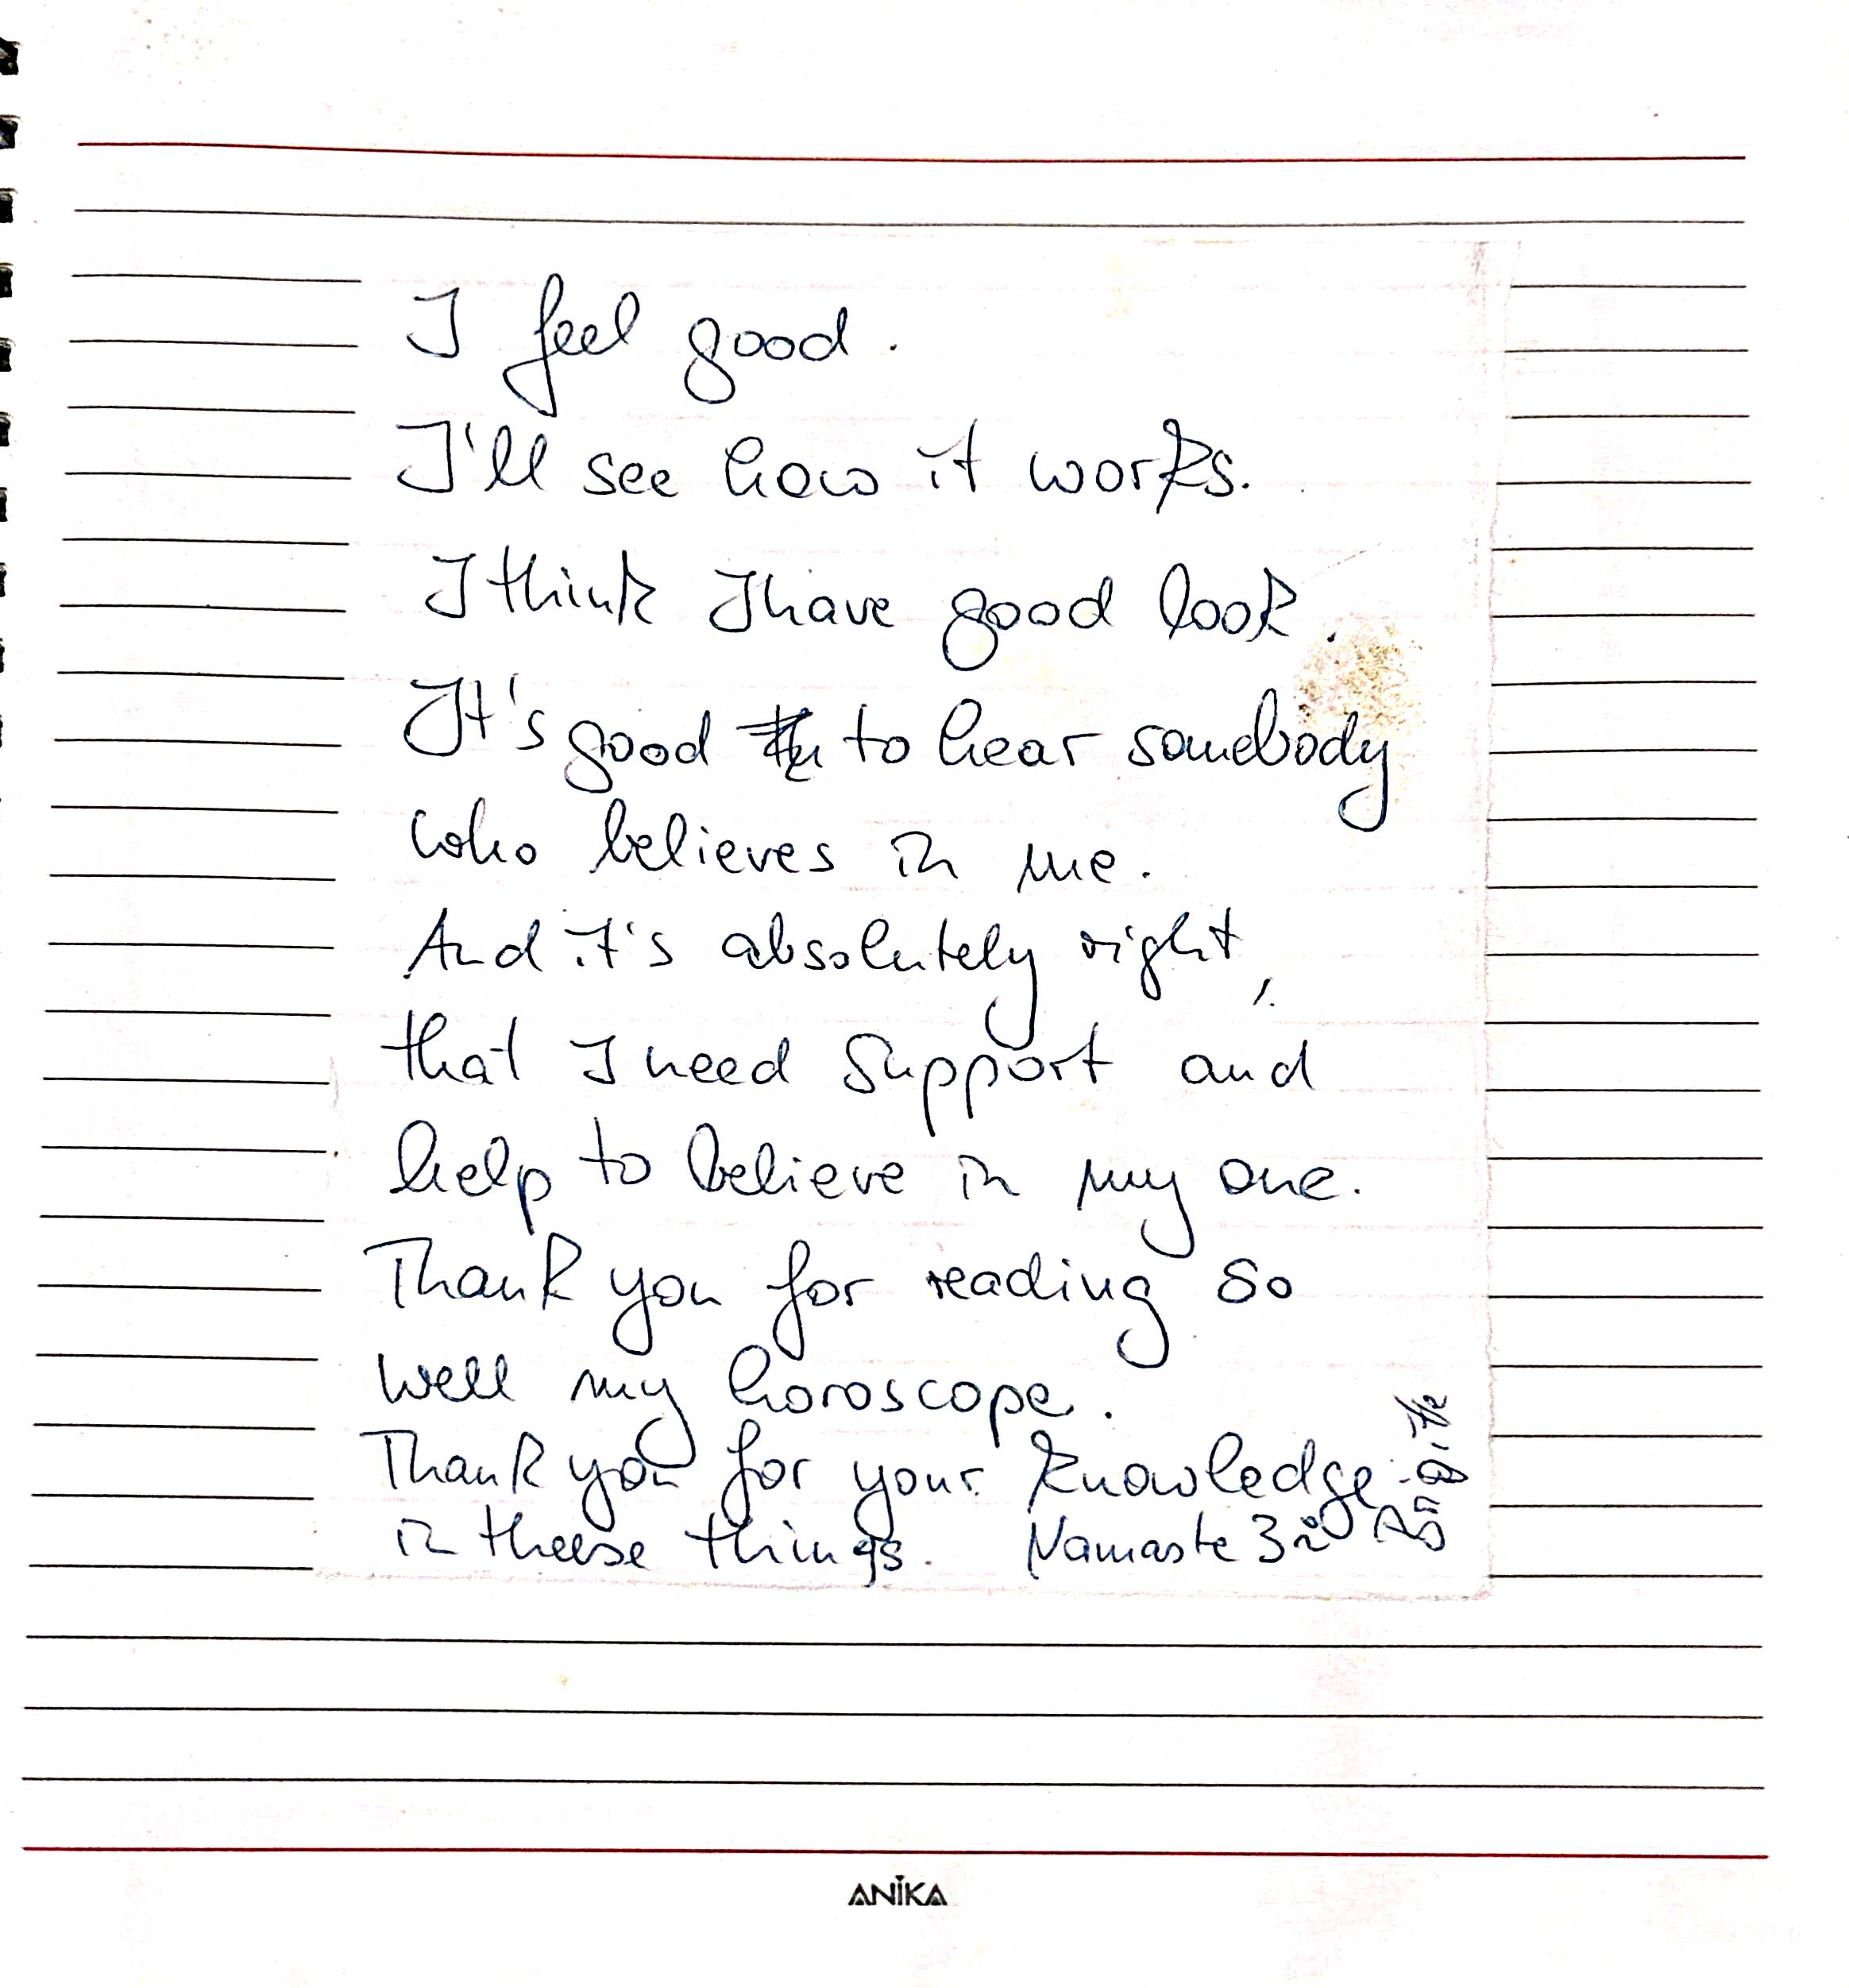 I feel good.
I'll see how it works.
I think I have good look.
It's good to hear somebody
who believes in me.
And it's absolutely right,
that I need Support and
help to believe in my one.
Thank you for reading so
well my horoscope.
Thank you for your knowledge
in theese things. Namaste
ANIKA